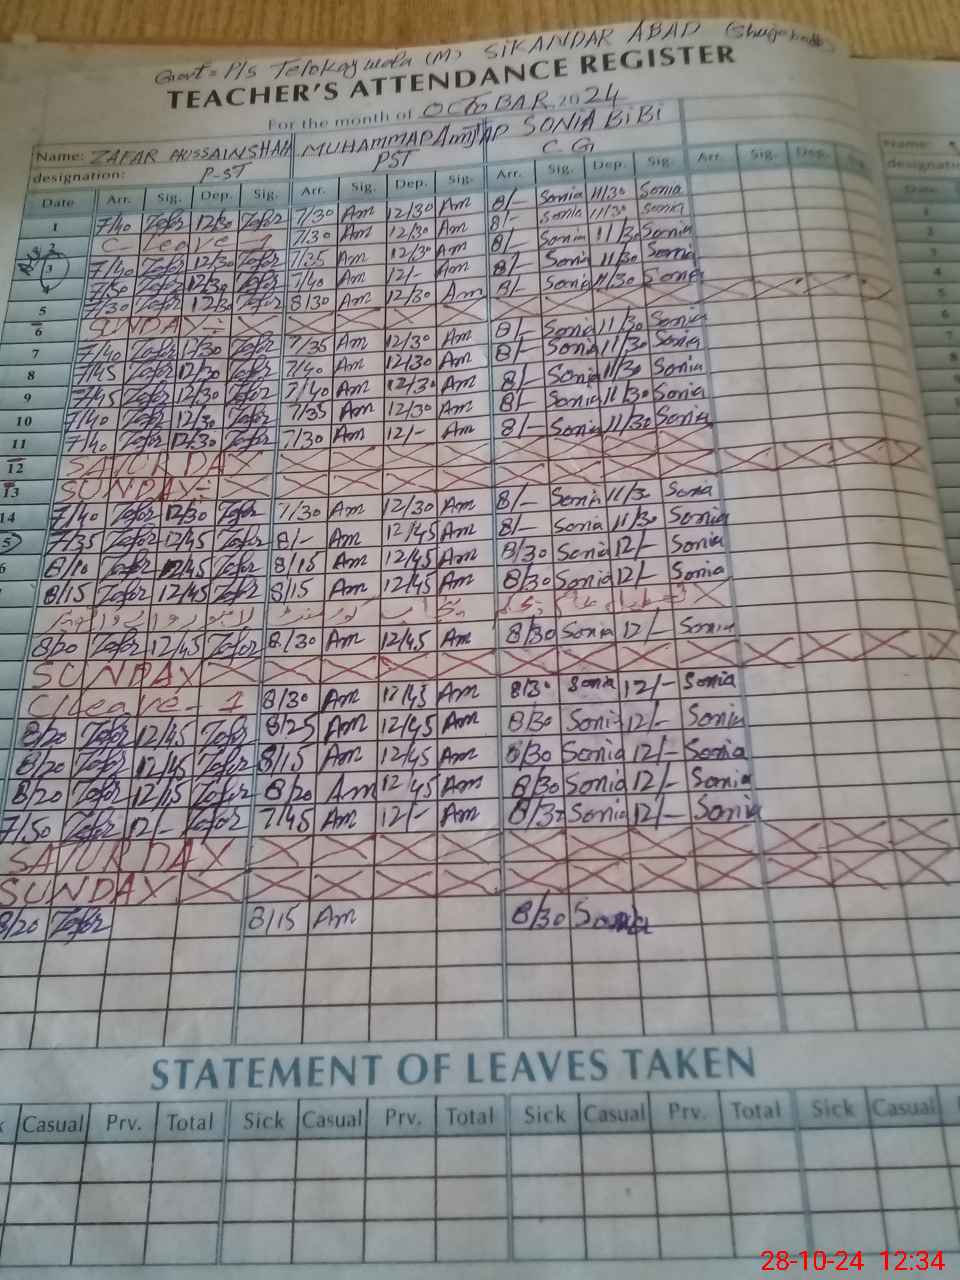 Govt= P/s Telokaywala (M) SIKANDAR ABAD (Shujabad)
TEACHER'S ATTENDANCE REGISTER
For the month of OCTOBAR 2024
Name: ZAFAR HUSSAINSHAH MUHAMMAD AMJAD SONIA BiBi
designation: P-ST PST C G
Date Arr. Sig. Dep. Sig. Arr. Sig. Dep. Sig. Arr. Sig. Dep. Sig. Arr. Sig. Dep.
1 7/40 Zafar 12/30 Zafar 7/30 Am 12/30 Am 8/- Sonia 11/30 Sonia
2 C- Leave-1 7/30 Am 12/30 Am 8/- Sonia 11/30 Sonia
3 7/40 Zafar 12/30 Zafar 7/35 Am 12/30 Am 8/- Sonia 11/30 Sonia
4 7/50 Zafar 12/30 Zafar 7/40 Am 12/- Am 8/- Sonia 11/30 Sonia
5 7/30 Zafar 12/30 Zafar 8/30 Am 12/30 Am
6 SUNDAY
7 7/40 Zafar 12/30 Zafar 7/35 Am 12/30 Am 8/- Sonia 11/30 Sonia
8 7/45 Zafar 12/30 Zafar 7/40 Am 12/30 Am 8/- Sonia 11/30 Sonia
9 7/45 Zafar 12/30 Zafar 7/40 Am 12/30 Am 8/- Sonia 11/30 Sonia
10 7/40 Zafar 12/30 Zafar 7/35 Am 12/30 Am 8/- Sonia 11/30 Sonia
11 7/40 Zafar 12/30 Zafar 7/30 Am 12/- Am 8/- Sonia 11/30 Sonia
12 SATURDAY
13 SUNDAY
14 7/40 Zafar 12/30 Zafar 7/30 Am 12/30 Am 8/- Sonia 11/30 Sonia
5 7/35 Zafar 12/45 Zafar 8/- Am 12/45 Am 8/- Sonia 11/30 Sonia
6 8/10 Zafar 12/45 Zafar 8/15 Am 12/45 Am 8/30 Sonia 12/- Sonia
8/15 Zafar 12/45 Zafar 8/15 Am 12/45 Am 8/30 Sonia 12/- Sonia
8/20 Zafar 12/45 Zafar 8/30 Am 12/45 Am 8/30 Sonia 12/- Sonia
SUNDAY
C/Leave-1 8/30 Am 12/45 Am 8/30 Sonia 12/- Sonia
8/20 Zafar 12/45 Zafar 8/25 Am 12/45 Am 8/30 Sonia 12/- Sonia
8/20 Zafar 12/45 Zafar 8/15 Am 12/45 Am 8/30 Sonia 12/- Sonia
8/20 Zafar 12/15 Zafar 8/20 Am 12/45 Am 8/30 Sonia 12/- Sonia
7/50 Zafar 12/- Zafar 7/45 Am 12/- Am 8/30 Sonia 12/- Sonia
SATURDAY
SUNDAY
8/20 Zafar 8/15 Am 8/30 Sonia
STATEMENT OF LEAVES TAKEN
Casual Prv. Total Sick Casual Prv. Total Sick Casual Prv. Total Sick Casual
28-10-24 12:34